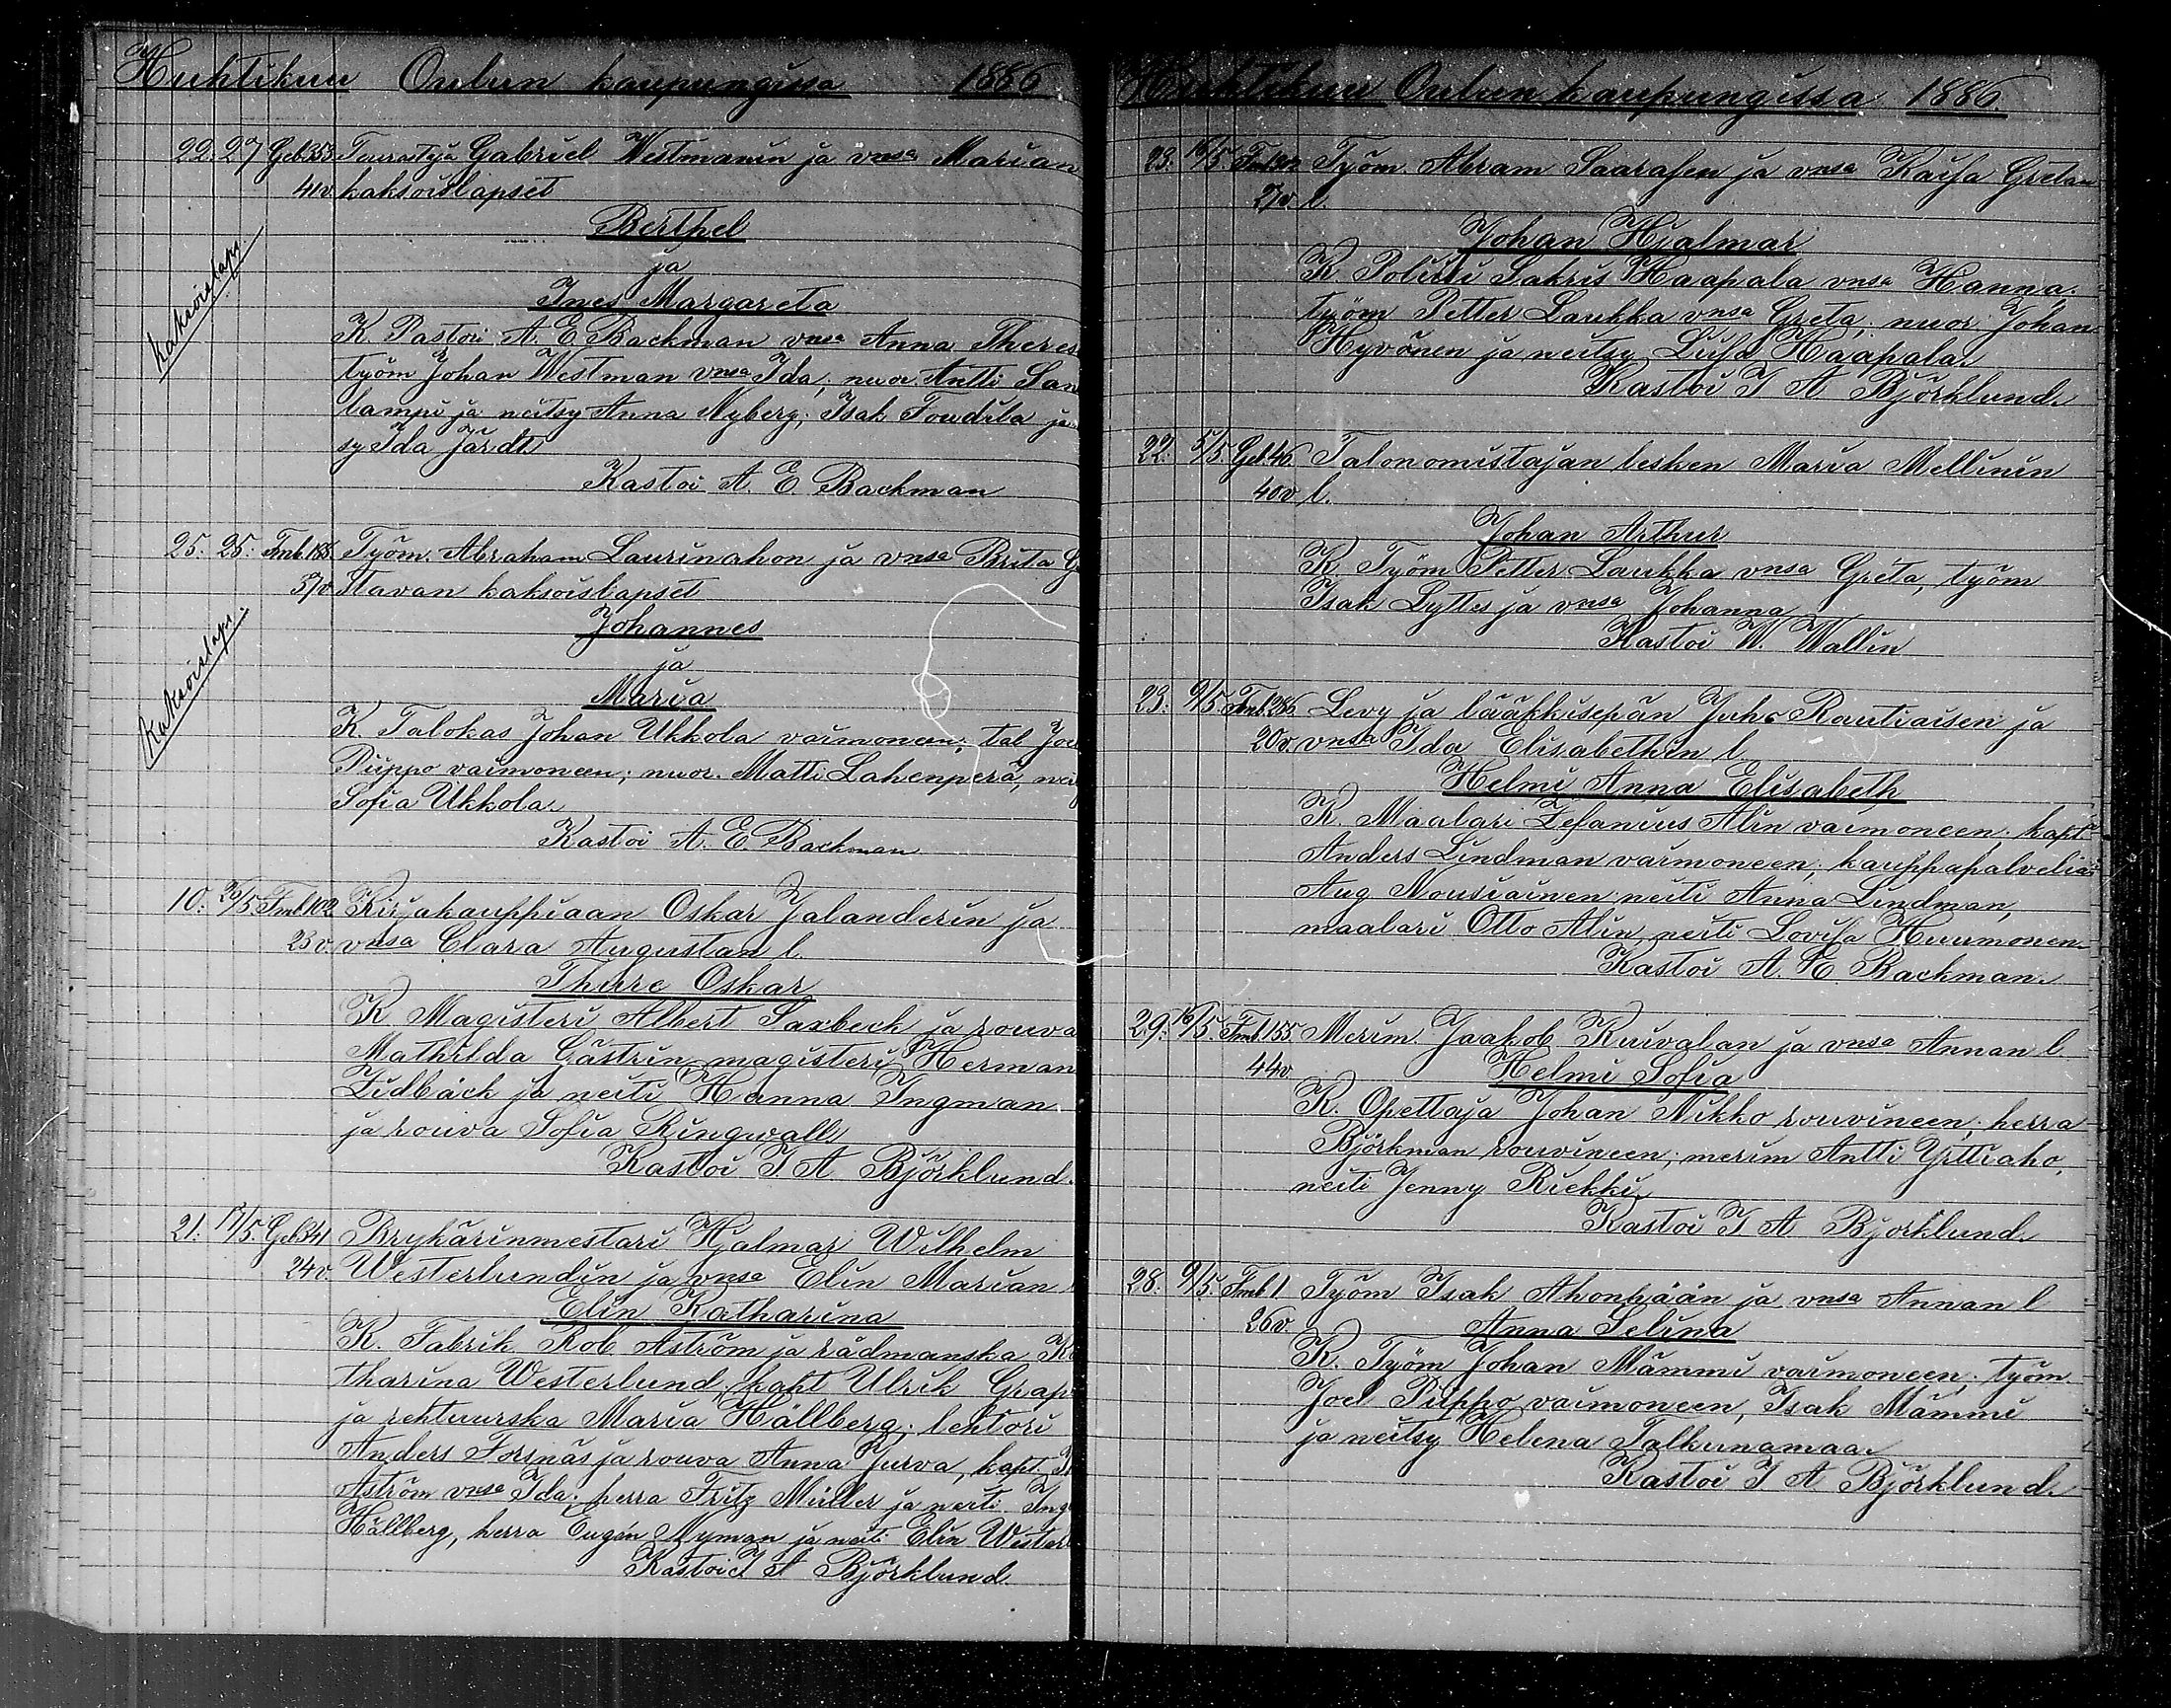 Huhtikuu Oulun kaupungissa 1886
22. 27 Geb.353 Teurastaja Gabriel Westmanin ja vnsa Marian
41v. kaksoislapset
Berthel
ja
Ines Margareta
Kaksoislaps.
K. Pastori A. E. Backman vnsa Anna Theres
työm Johan Westman vnsa Ida; nuor. Antti
lampi ja neitsy Anna Nyberg; Isak Toudila ja
sy Ida
Kastoi A. E. Backman
25. 25. Fmb.185. Työm. Abraham Laurinahon ja vnsa Brita
37v. stavan kaksoislapset
Johannes
ja
Maria
Kaksoislaps.
K. Talokas Johan Ukkola vaimoneen; tal
Piippo vaimoneen; nuor. Matti Lahenperä,
Sofia Ukkola.
Kastoi A. E. Backman
10. 20/5 Fmb.102 Kirjakauppiaan Oskar Jalanderin ja
23v. vnsa Clara Augustan l.
Thure Oskar
K. Magisteri Albert Saxbeck ja rouva
Mathilda Gästrin, magisteri Herman
Lidbäck ja neiti Hanna Ingman
ja rouva Sofia Ringwall
Kastoi I A Björklund.
21. 17/5. Geb.341 Brykärinmestari Hjalmar Wilhelm
24v. Westerlundin ja vnsa Elin Marian
Elin Katharina
K. Fabrik. Rob Aström ja rådmanska
tharina Westerlund, kapt Ulrik
ja rehtuurska Maria Hällberg; lehtori
Anders Forsnäs ja rouva Anna Jurva, kapt.
Aström vnsa Ida; herra Fritz Müller ja neiti
Hällberg, herra Eugén Nyman ja neiti Elin
Kastoi I A Björklund.
Huhtikuu Oulun kaupungissa 1886
23. 16/5 Työm. Abram Saarasen ja vnsa Kaisa Gretan
27v. l.
Johan Hjalmar
K. Poliisi Sakris Haapala vnsa Hanna.
työm Petter Laukka vnsa Greta; nuor Johan
Hyvönen ja neitsy Liisa Haapala.
Kastoi I A Björklund.
22. 5/5. Geb.46. Talonomistajan lesken Maria Mellinin
40v l.
Johan Arthur
K. Työm Petter Laukka vnsa Greta, työm
Isak Lyttes ja vnsa Johanna
Kastoi W. Wallin
23. 9/5. Fmb.286. Levy ja lääkkisepän Juho Rautiaisen ja
20v. vnsa Ida Elisabethin l.
Helmi Anna Elisabeth
K. Maalari Alin vaimoneen; kapt.
Anders Lindman vaimoneen; kauppapalvelia
Aug Nousiainen neiti Anna Lindman,
maalari Otto Alin, neiti Lovisa Huumonen
Kastoi A. E. Backman.
29. 16/5. Fmb.155 Merim. Jaakob Kuivalan ja vnsa Annan l
44v. Helmi Sofia
K. Opettaja Johan Nikko rouvineen; herra
Björkman rouvineen; merim Antti Yrttiaho,
neiti Jenny Riekki,
Kastoi I A Björklund.
28. 9/5. Fmb.1 Työm Isak Ahonpään ja vnsa Annan l
26v. Anna Selina
K. Työm Johan Mämmi vaimoneen; työm.
Joel Piippo vaimoneen, Isak Mämmi
ja neitsy Helena Talkunamaa.
Kastoi I A Björklund.